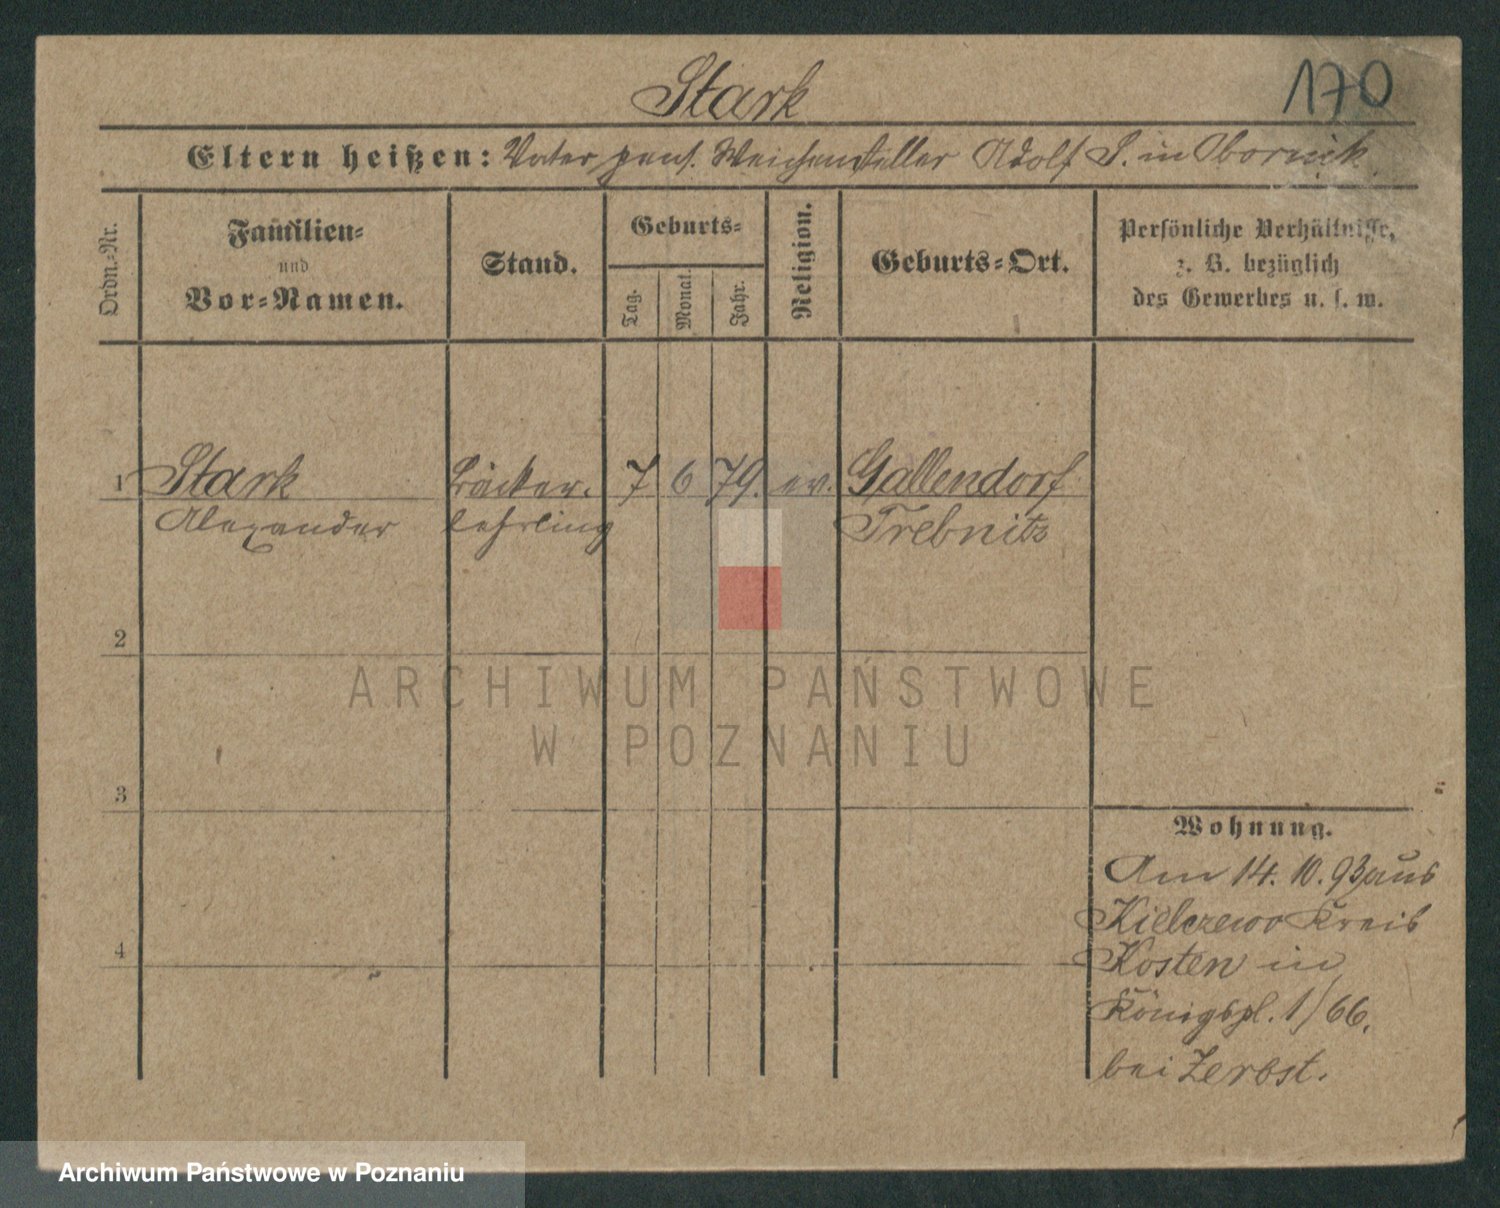 Stark
170
Eltern heißen: Vater pens. Weichensteller Adolf S. in Obornik
Ordn.-Nr.
Familien-
und
Vor-Namen.
Stand.
Geburts-
Tag.
Monat.
Jahr.
Religion.
Geburts-Ort.
Persönliche Verhältnisse,
z. B. bezüglich
des Gewerbes u. s. w.
1 Stark Bäcker- 7 6 79. ev. Gallendorf
Alexander lehrling Trebnitz
2
ARCHIWUM PAŃSTWOWE
W POZNANIU
3
Wohnung.
Am 14. 10. 93 aus
Kielczewo Kreis
4
Kosten in
Königspl. 1/66.
bei Zerbst.
Archiwum Państwowe w Poznaniu